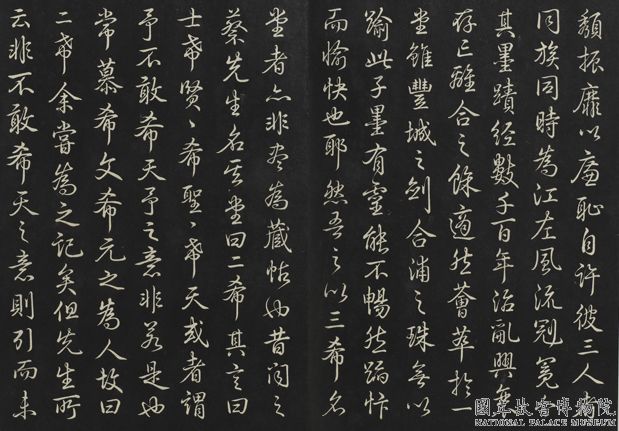 頹振靡以廉恥自許彼三人者
同族同時為江左風流冠冕今
其墨蹟經數千百年治亂興衰
存亡離合之餘適然薈萃於一
堂雖豐城之劍合浦之珠無以
踰此子墨有靈能不暢然蹈忭
而愉快也耶然吾之以三希名
堂者亦非盡為藏帖也昔聞之
蔡先生名其堂曰二希其言曰
士希賢〻希聖〻希天或者謂
予不敢希天予之意非若是也
常慕希文希元之為人故曰
二希余嘗為之記矣但先生所
云非不敢希天之意則引而未
國立故宮博物院
NATIONAL PALACE MUSEUM